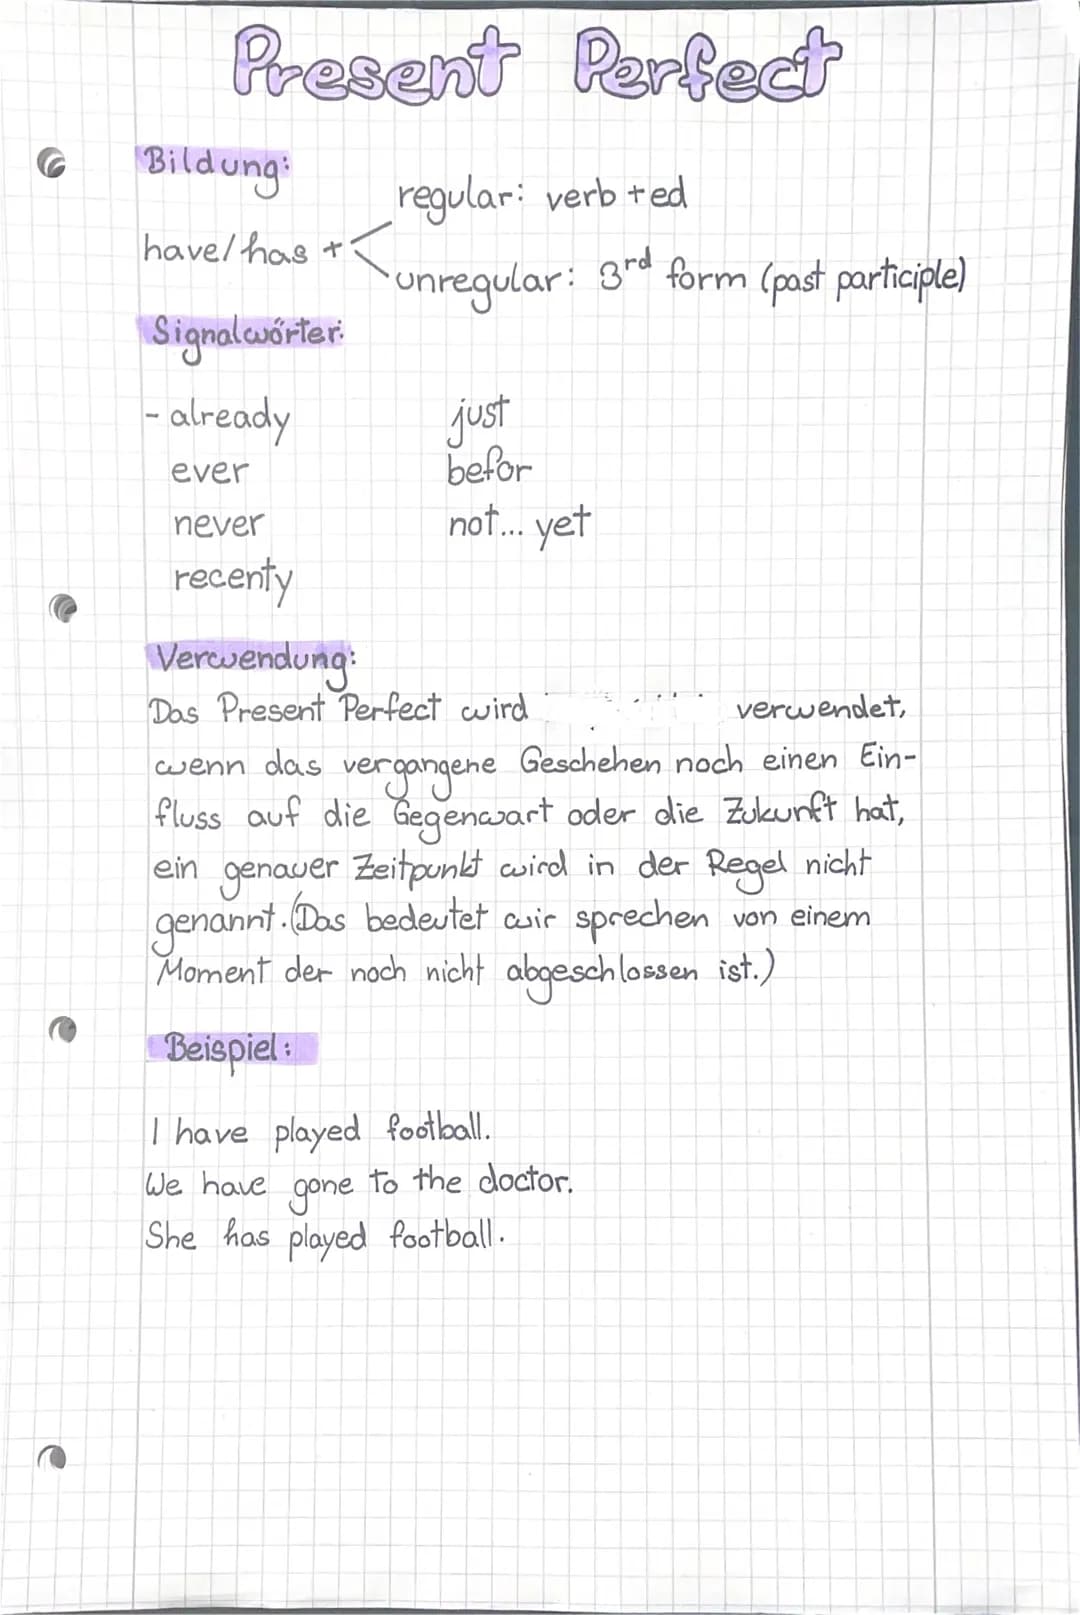 Present Perfect
Bildung:
regular: verb + ed
have/has +
unregular: 3rd form (past participle)
Signalwörter:
- already just
ever befor
never not... yet
recenty
Verwendung:
Das Present Perfect wird verwendet,
wenn das vergangene Geschehen noch einen Ein-
fluss auf die Gegenwart oder die Zukunft hat,
ein genauer Zeitpunkt wird in der Regel nicht
genannt. (Das bedeutet wir sprechen von einem
Moment der noch nicht abgeschlossen ist.)
Beispiel:
I have played football.
We have gone to the doctor.
She has played football.